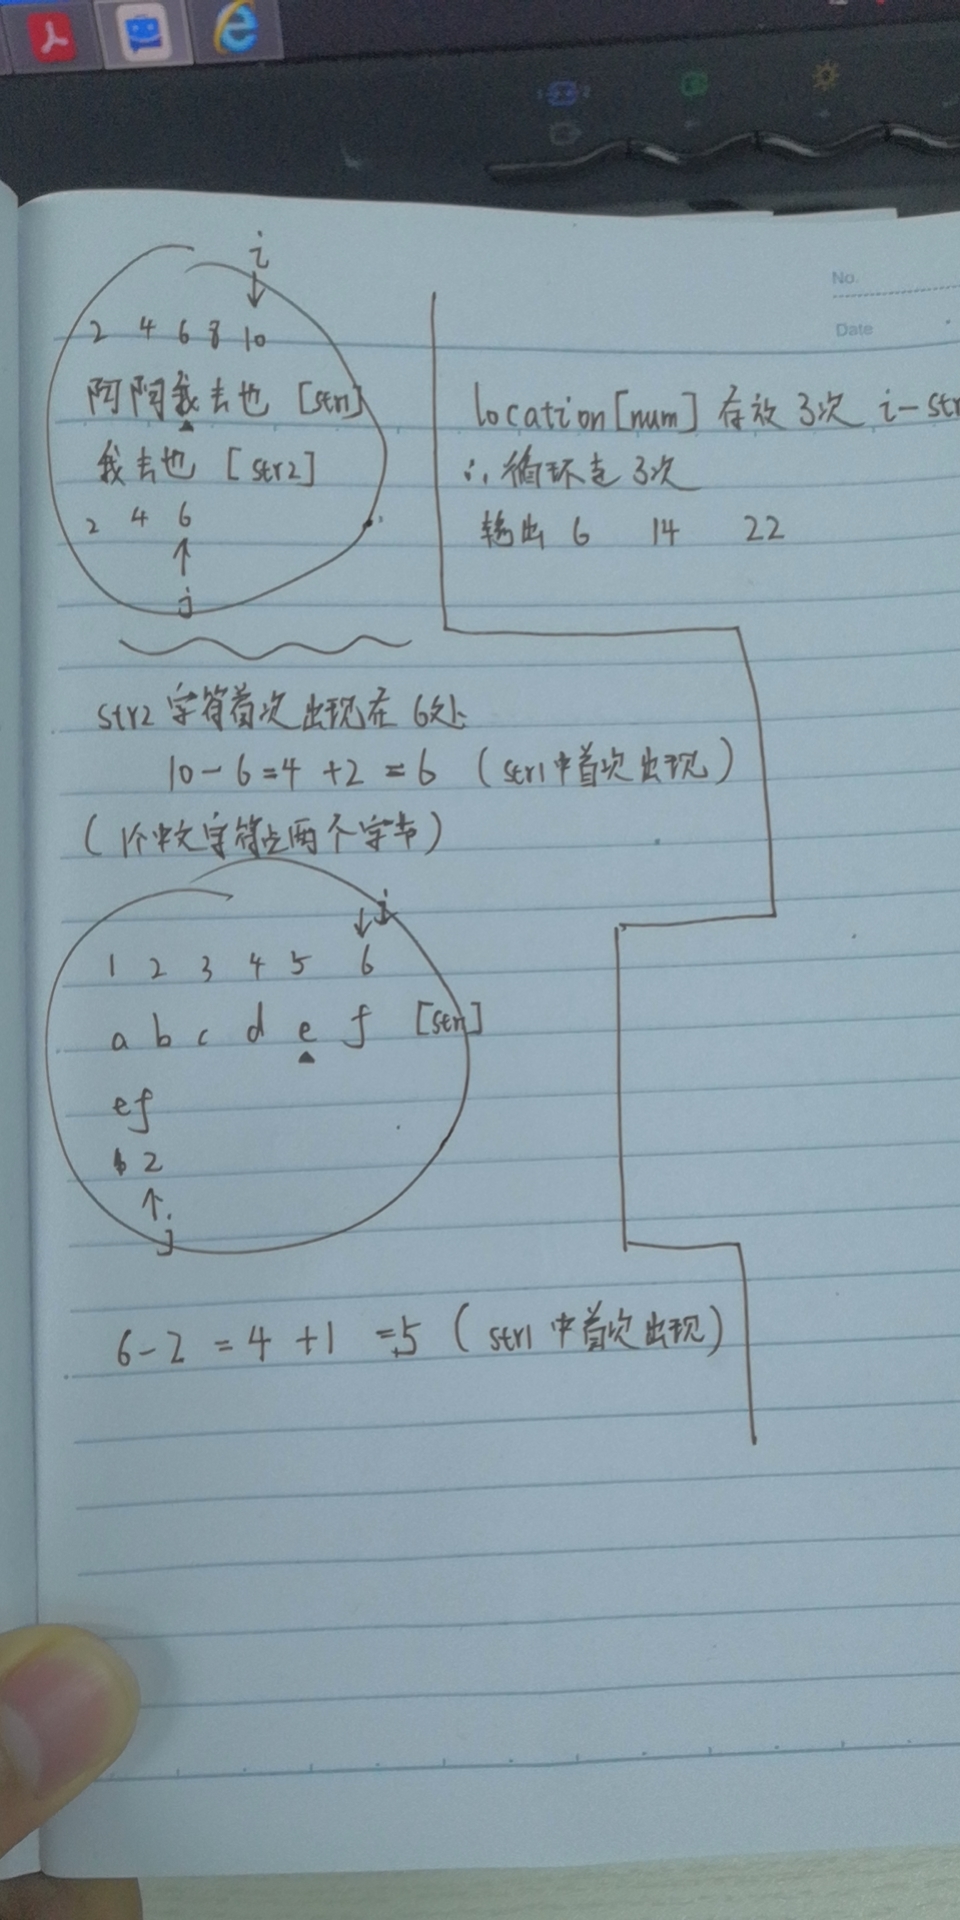 No.
Date
i
↓
2 4 6 8 10
阿阿我去也 [str1]
我去也 [str2]
2 4 6
↑
j
str2 字符首次出现在 6处
10-6=4 +2 =6 (str1中首次出现)
(1个中文字符占两个字节)
↓ i
1 2 3 4 5 6
a b c d e f [str1]
ef
1 2
↑
j
6-2 =4 +1 =5 (str1 中首次出现)
location[num] 存放3次 i-str
∴ 循环走3次
输出 6 14 22